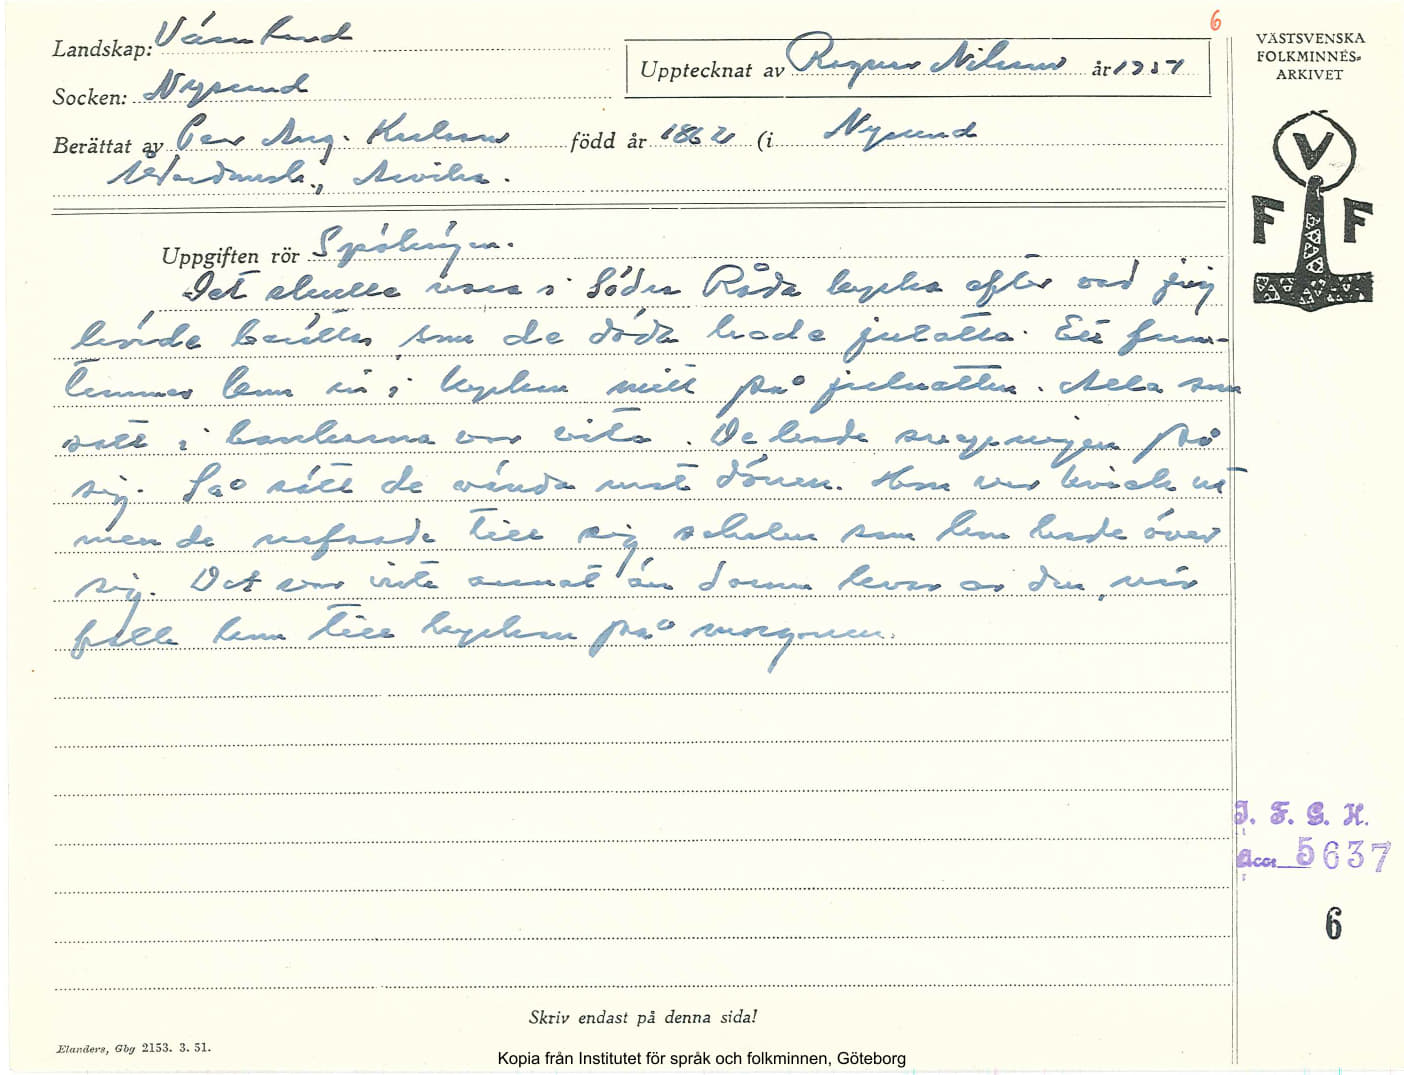 6
Landskap: Värmland
Upptecknat av Ragnar Nilsson år 1951
VÄSTSVENSKA
FOLKMINNES-
ARKIVET
Socken: Nysund
Berättat av Per Aug. Karlsson född år 1862 (i Nysund
Arvika.
V
F F
Uppgiften rör Spökerier.
Det skulle vara i Södra Råda kyrka efter vad jag
hörde berättas, som de döda hade julotta. Ett frun-
timmer kom in i kyrkan mitt på julnatten. Alla som
satt i bänkarna var vita. De hade svepningen på
sig. Så satt de vända mot dörren. Hon var kvick ut
men de rafsade till sig schalen som hon hade över
sig. Det var inte annat än damm kvar av den, när
folk kom till kyrkan på morgonen.
I. F. G. H.
Acc. 5637
6
Skriv endast på denna sida!
Elanders, Gbg 2153. 3. 51.
Kopia från Institutet för språk och folkminnen, Göteborg